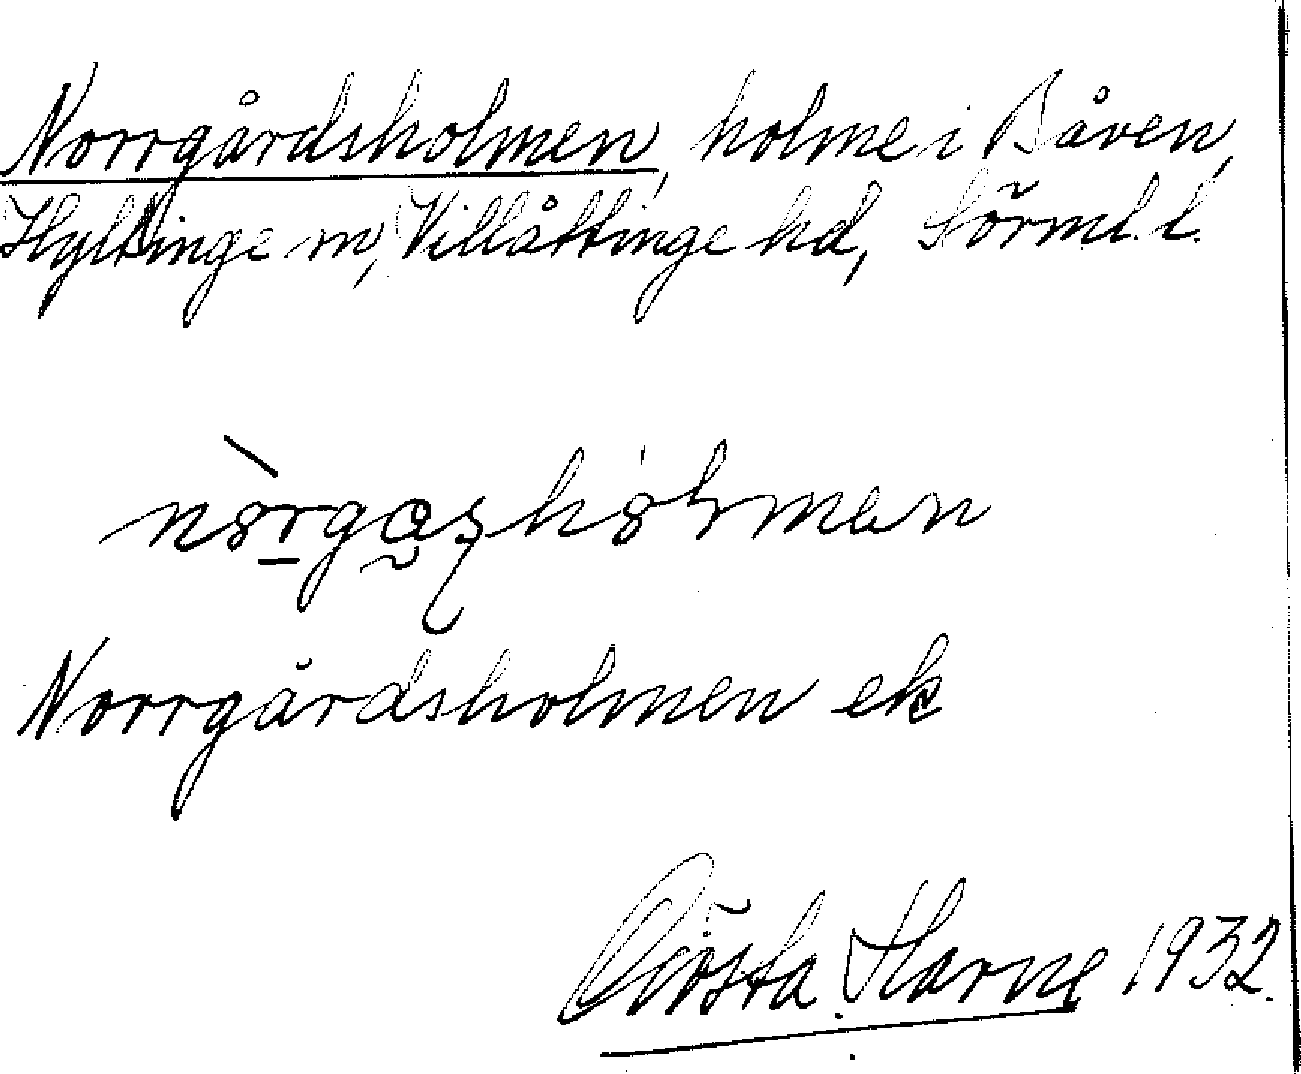 Norrgårdsholmen, holme i Båven,
Hyltinge sn, Villåttinge hd, Sörml. l.
Norrgårdsholmen ek
Gösta Harne 1932.